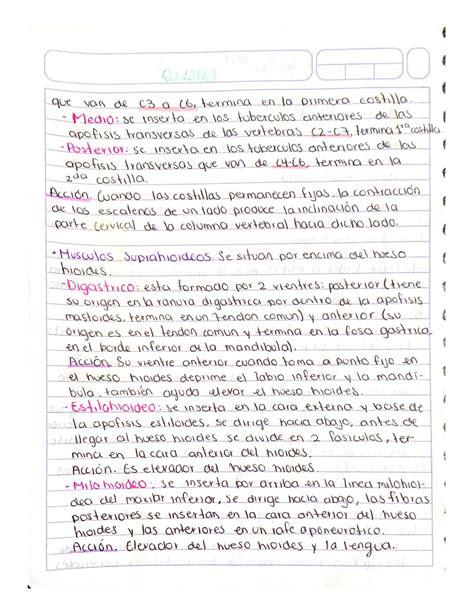 que van de C3 a C6, termina en la primera costilla.
- Medio: se inserta en los tuberculos anteriores de las
apofisis transversas de las vertebras C2-C7, termina 1ra costilla
- Posterior: se inserta en los tuberculos anteriores de las
apofisis transversas que van de C4-C6, termina en la
2da costilla.
Acción. Cuando las costillas permanecen fijas, la contracción
de los escalenos de un lado produce la inclinación de la
parte cervical de la columna vertebral hacia dicho lado.
• Musculos Suprahioideos. Se situan por encima del hueso
hioides.
- Digastrico: esta formado por 2 vientres: posterior (tiene
su origen en la ranura digastrica por dentro de la apofisis
mastoides, termina en un tendon comun) y anterior (su
origen es en el tendon comun y termina en la fosa gastrica
en el borde inferior de la mandibula).
Acción. Su vientre anterior cuando toma a punto fijo en
el hueso hioides deprime el labio inferior y la mandi-
bula, también ayuda elevar el hueso hioides.
- Estilohioideo: se inserta en la cara externa y base de
la apofisis estiloides, se dirige hacia abajo, antes de
llegar al hueso hioides se divide en 2 fasiculos, ter-
mina en la cara anterior del hioides.
Acción. Es elevador del hueso hioides.
- Milohioideo: se inserta por arriba en la linea milohioi-
dea del maxilar inferior, se dirige hacia abajo, las fibras
posteriores se insertan en la cara anterior del hueso
hioides y las anteriores en un rafe aponeurotico.
Acción. Elevador del hueso hioides y la lengua.